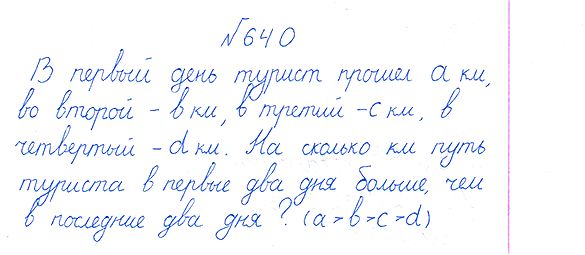 №640
В первый день турист прошел a км,
во второй - в км, в третий - с км, в
четвертый - d км. На сколько км путь
туриста в первые два дня больше, чем
в последние два дня? (a > b > c > d)